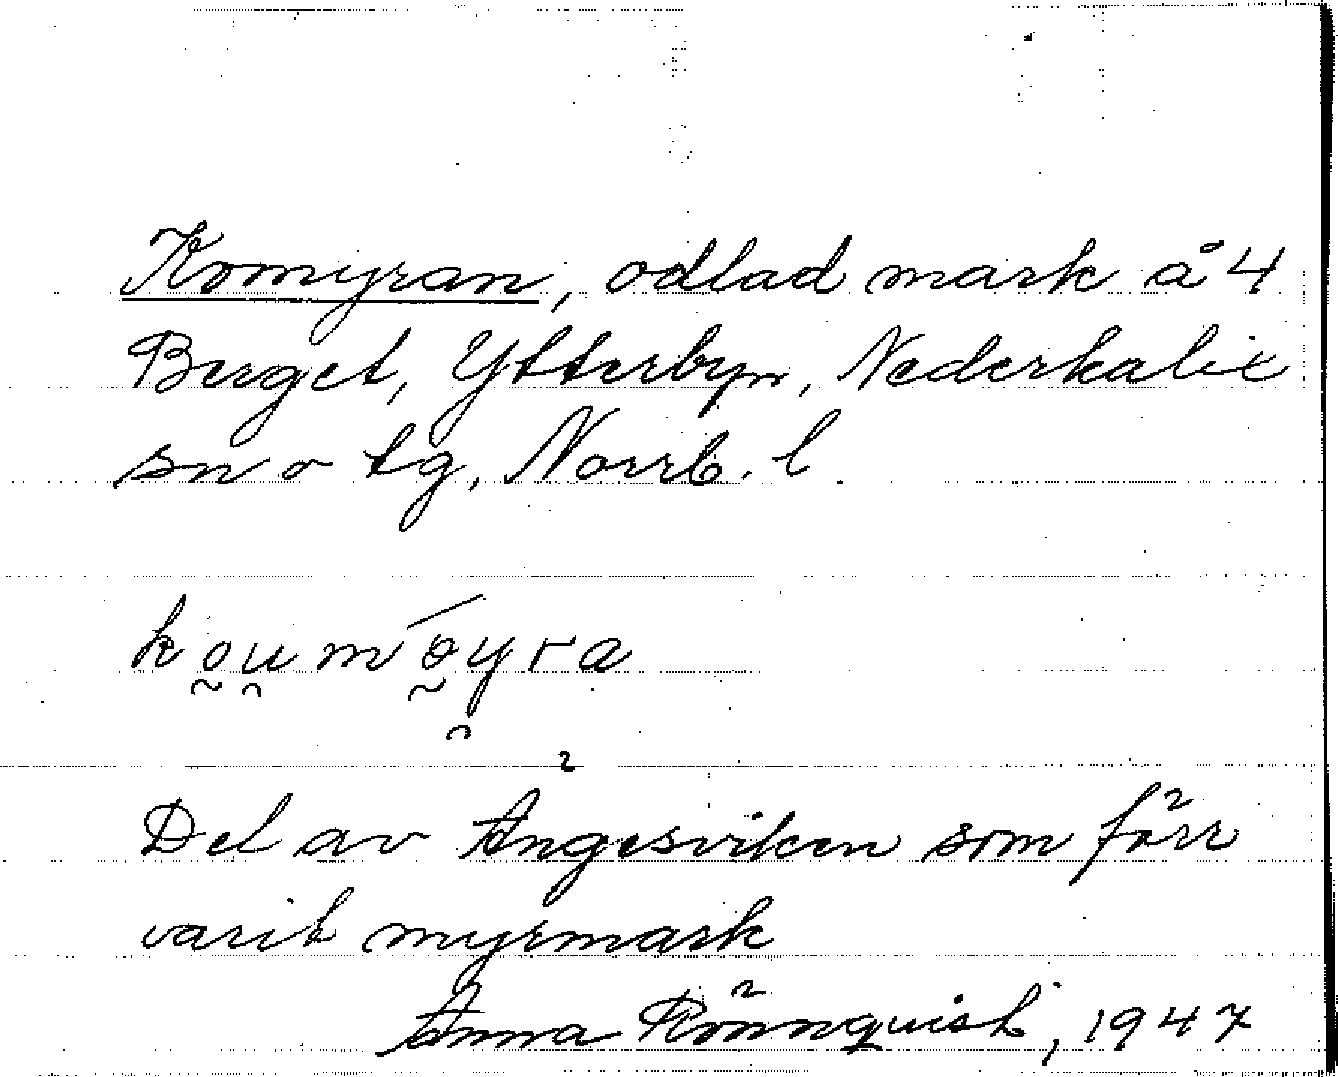 Komyran, odlad mark å 4
Berget, Ytterbyn, Nederkalix
sn o tg, Norrb. l
Del av Ängesviken som förr
varit myrmark
Anna Rönnquist, 1947